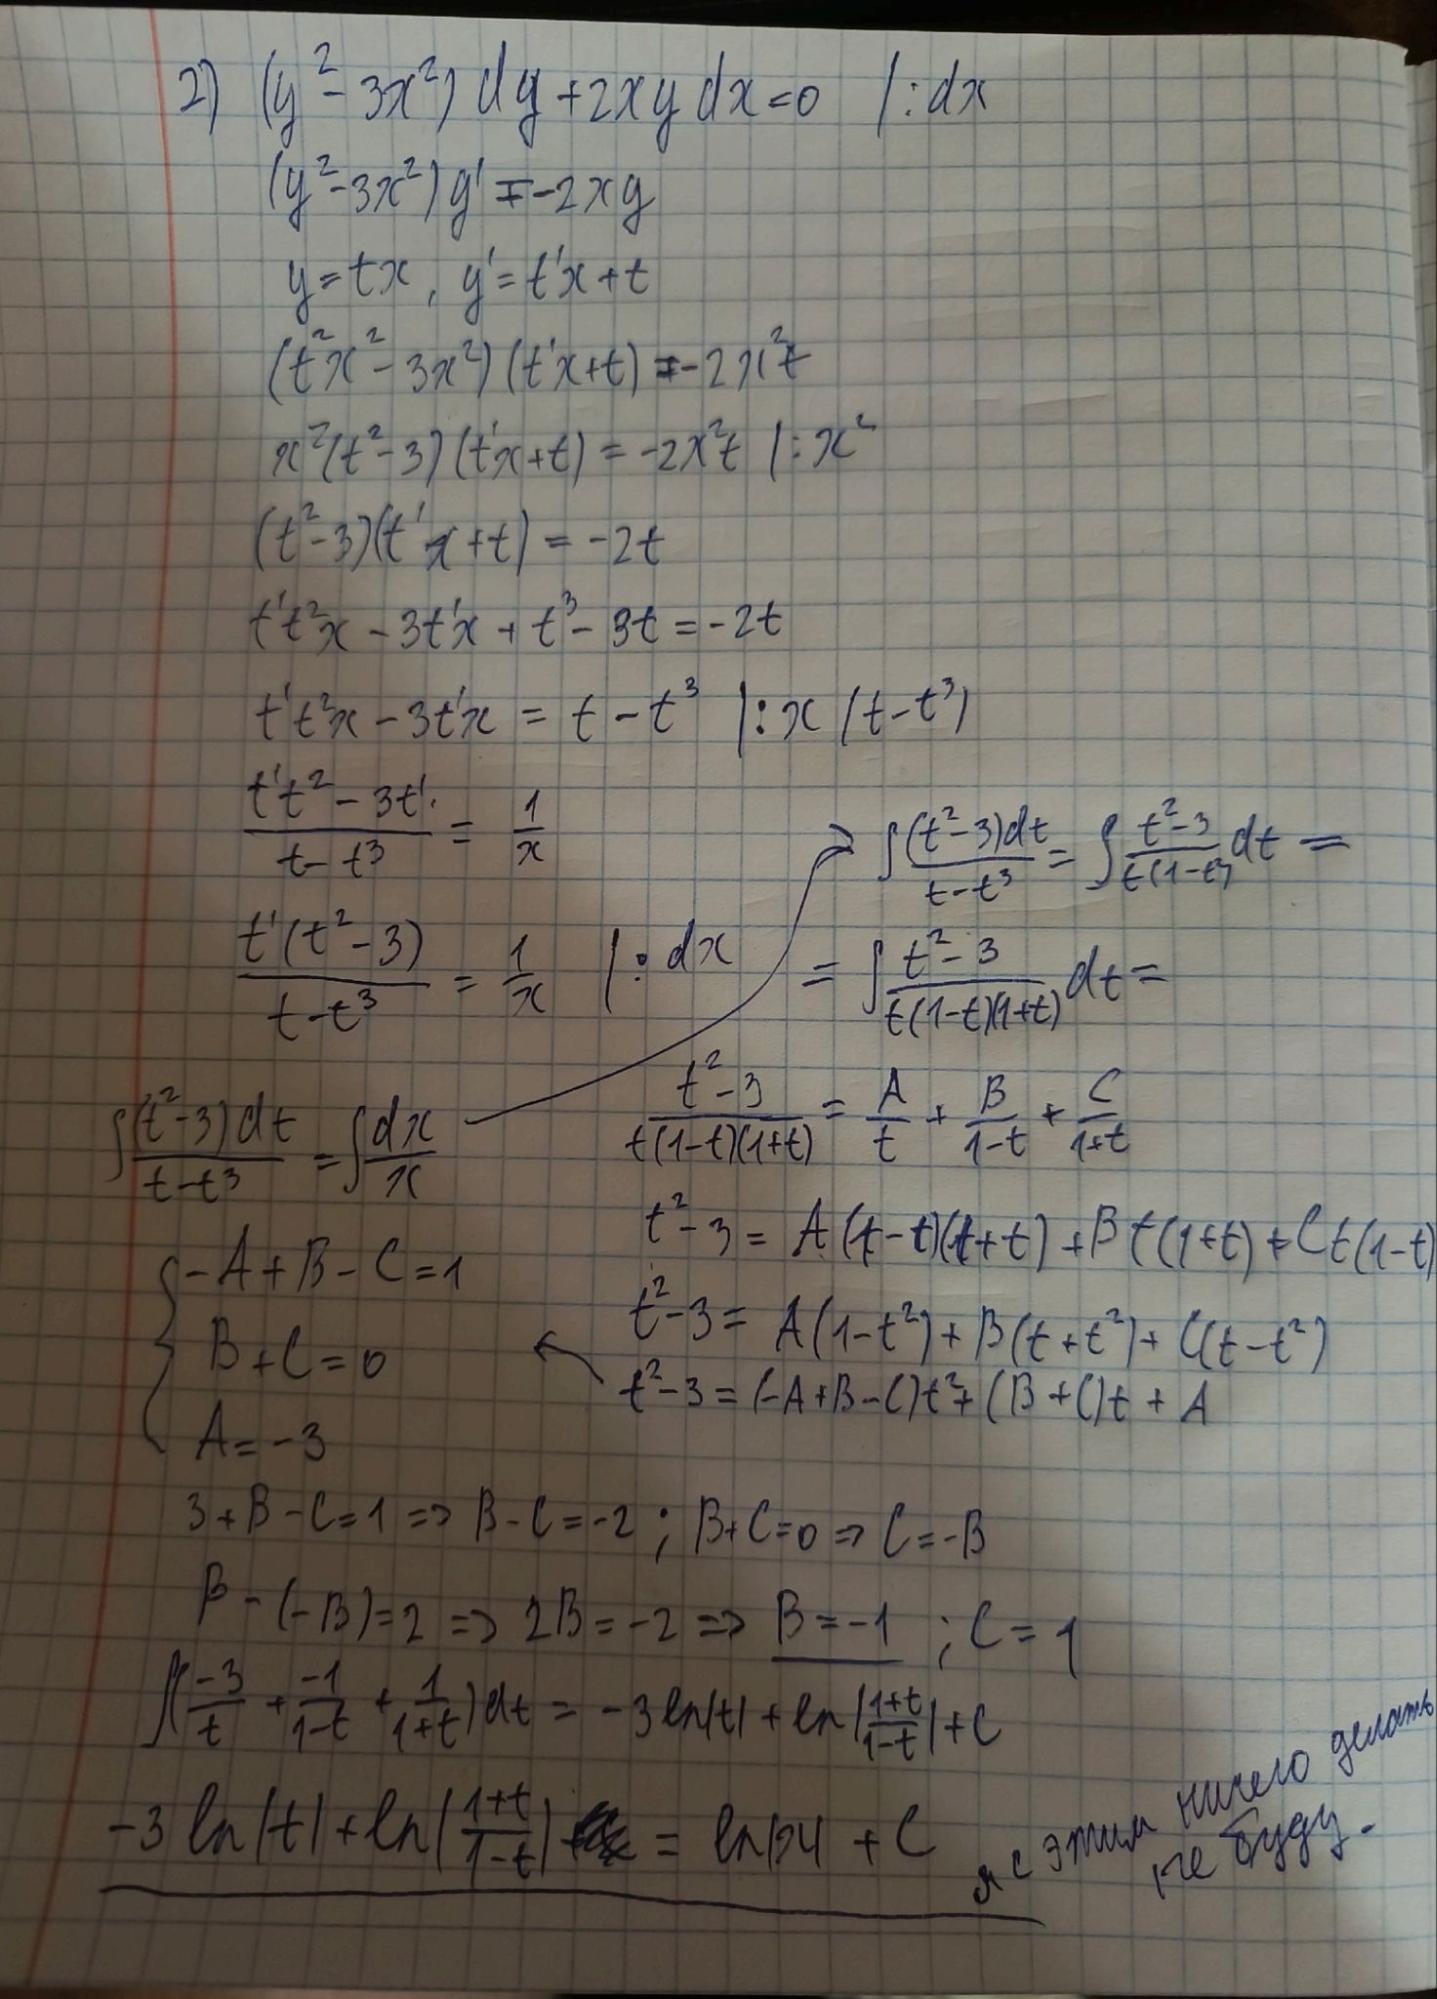 2) (y²-3x²) dy+2xy dx=0 |:dx
(y²-3x²) y' = -2xy
y=tx, y'=t'x+t
(t²x²-3x²)(t'x+t) = -2x²t
x²(t²-3)(t'x+t) = -2x²t |:x²
(t²-3)(t'x+t) = -2t
t't²x - 3t'x + t³ - 3t = -2t
t't²x - 3t'x = t - t³ |:x(t-t³)
(t't² - 3t')/(t-t³) = 1/x
t'(t²-3)/(t-t³) = 1/x |:dx
∫(t²-3)dt/(t-t³) = ∫dx/x
∫(t²-3)dt/(t-t³) = ∫(t²-3)/(t(1-t²)) dt =
= ∫(t²-3)/(t(1-t)(1+t)) dt =
(t²-3)/(t(1-t)(1+t)) = A/t + B/(1-t) + C/(1+t)
t²-3 = A(1-t)(1+t) + Bt(1+t) + Ct(1-t)
t²-3 = A(1-t²) + B(t+t²) + C(t-t²)
t²-3 = (-A+B-C)t² + (B+C)t + A
{ -A+B-C=1
B+C=0
A=-3
3+B-C=1 => B-C=-2; B+C=0 => C=-B
B-(-B)=2 => 2B=-2 => B=-1; C=1
∫(-3/t + -1/(1-t) + 1/(1+t))dt = -3ln|t| + ln|(1+t)/(1-t)| + C
-3 ln|t| + ln|(1+t)/(1-t)| = ln|x| + C
я с этим ничего делать
не буду.